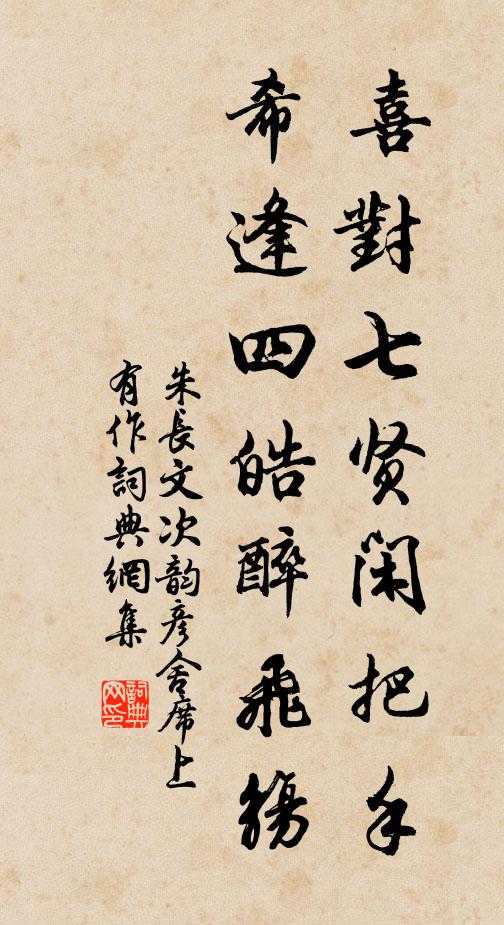 喜對七贤闲把手
希逢四皓醉飛觴
朱長文次韵彦舍席上
有作詞典網集
詞典网印